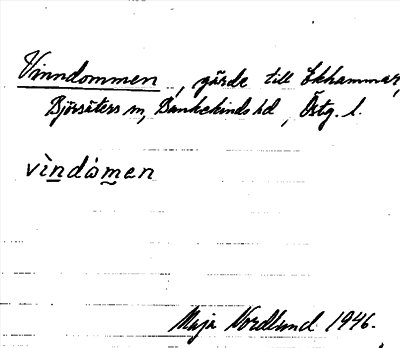 Vinndommen, gärde till Ekhammar,
Björsäters sn, Bankekinds hd, Östg. l.
vìndȧmen
Maja Nordlund 1946.